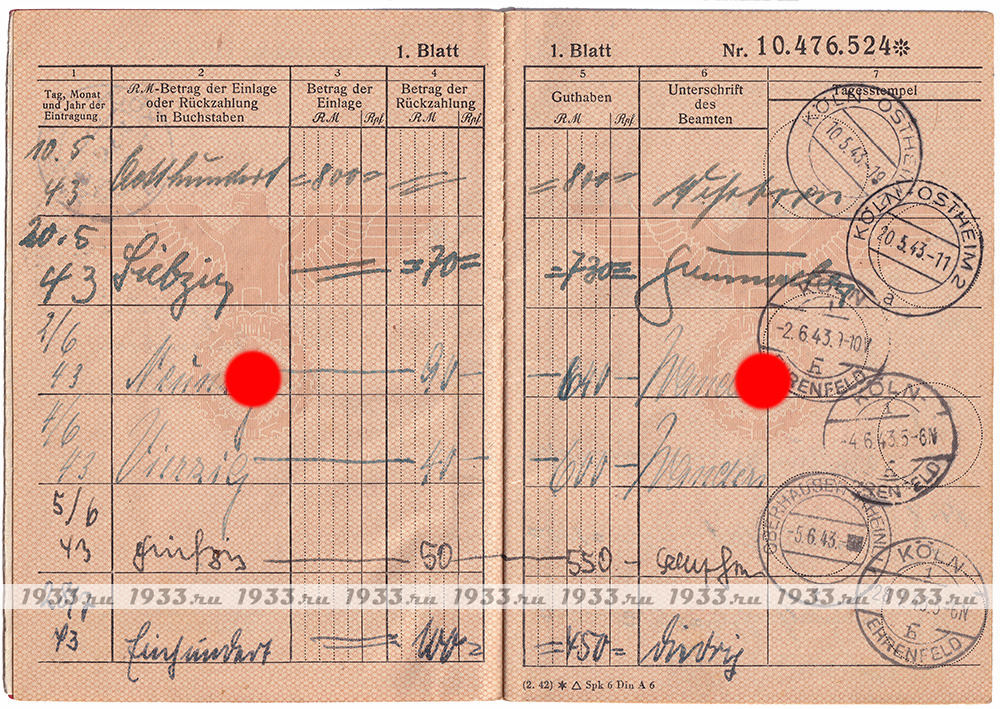 1. Blatt
1 2 3 4
Tag, Monat und Jahr der Eintragung
RM-Betrag der Einlage oder Rückzahlung in Buchstaben
Betrag der Einlage
RM Rpf
Betrag der Rückzahlung
RM Rpf
10.5 43 Achthundert =800= =
20.5 43 Siebzig = =70=
2/6 43 Neunzig — 90 —
4/6 43 Vierzig — 40 —
5/6 43 fünfzig — 50
43 Einhundert = 100=
1. Blatt Nr. 10.476.524*
5 6 7
Guthaben
RM Rpf
Unterschrift des Beamten
Tagesstempel
=800=
KÖLN-OSTHEIM
10.5.43.-19
=730=
KÖLN-OSTHEIM 2
20.5.43.-11
a
—640—
KÖLN 1
-2.6.43.
EHRENFELD
—600—
KÖLN 1
-4.6.43.5-6N
EHRENFELD
—550—
OBERHAUSEN (RHEINL)
-5.6.43.-
=450= Diedrig
KÖLN 1
5-6N
EHRENFELD
(2. 42) ✱ △ Spk 6 Din A 6
1933.ru 1933.ru 1933.ru 1933.ru 1933.ru 1933.ru 1933.ru